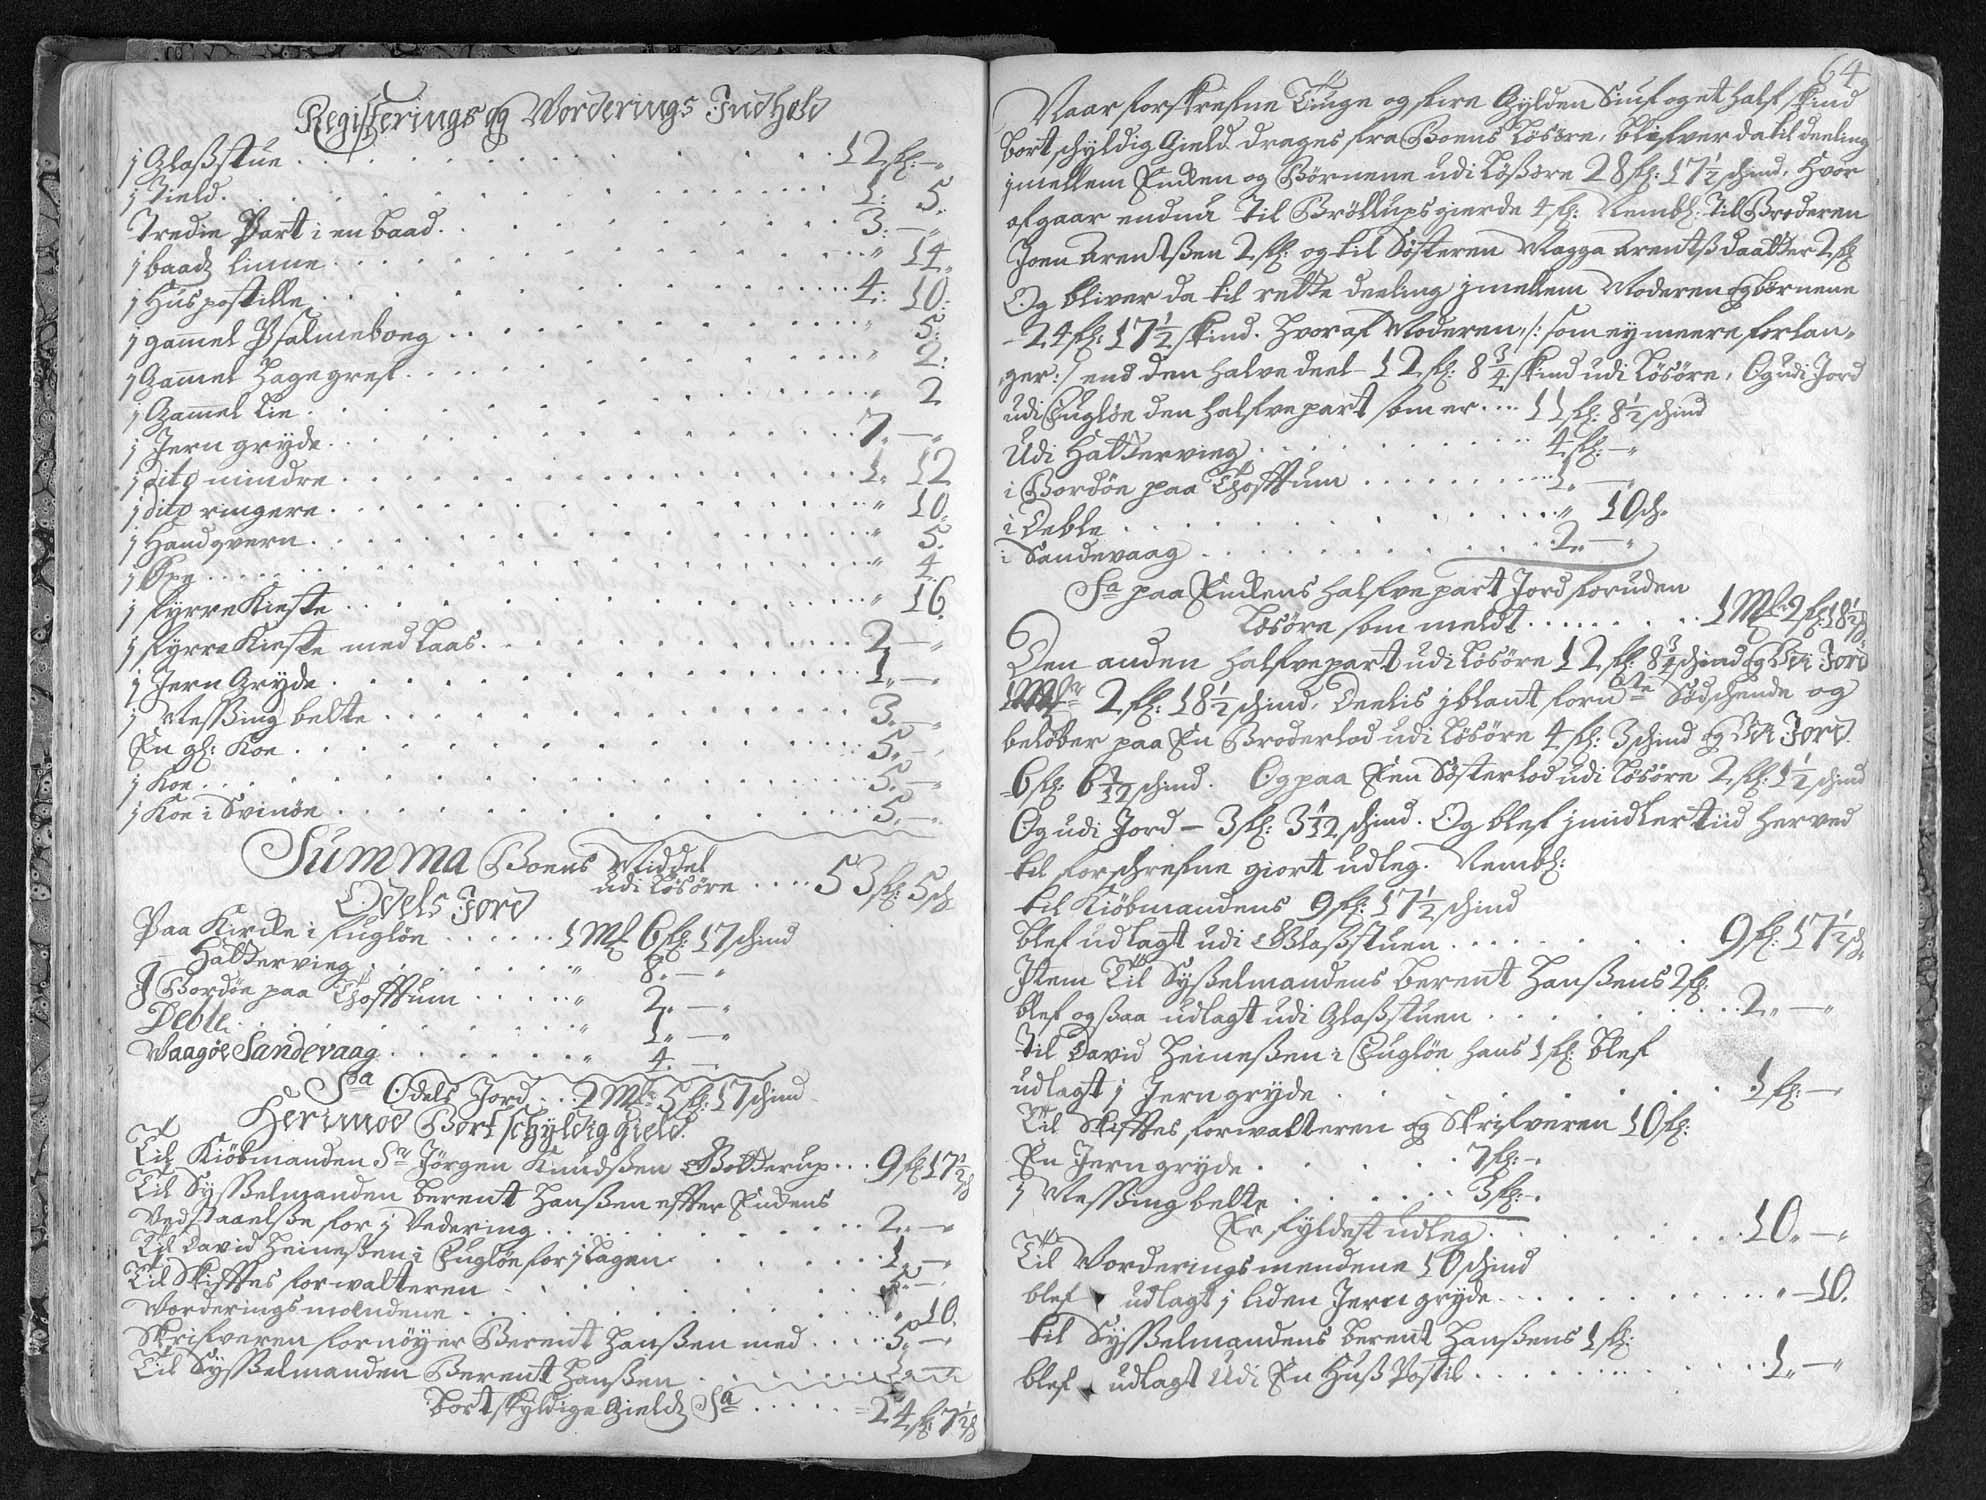 Registerings og Vorderings Indhold
j Glaßstue . . . 12 fl: —
j Tield . . . 1: 5.
Tredie Part i en baad . . . 3. —
j baads linne . . . " 14.
j Huspostille . . . 4: 10:
j gamel Psalmeboeg . . . " 5:
j Gamel Hagegref . . . " 2:
j Gamel Lie . . . " 2
j Jern gryde . . . 7. —
j dito mindre . . . 1. 12
j dito ringere . . . " 10.
j Handqvern . . . " 5.
j Øxe . . . " 4.
j fyrre Kieste . . . " 16.
j fyrre Kieste med Laas . . . 2. —
j Jern Gryde . . . 1. —
j Messing belte . . . 3. —
En gl: Koe . . . 5. —
j Koe . . . 5. —
j Koe i Svinöe . . . 5. —
Summa Boens Middel
udi Lösöre . . . . 53 fl: 5 sch
Odels Jord
Paa Kircke i fuglöe . . . 1 Mk 6 fl: 17 schind
Hatterviig . . . " 8. —
I Bordöe paa Toftum . . . " 2. —
Deble . . . " 1. —
Waagöe Sandevaag . . . " 4. —
Sa Odels Jord . . 2 Mk: 5 fl: 17 schind
Herimod Bort schyldig gield.
Til Kiöbmanden Sr Jörgen Knudßen Botterup . . . 9 fl 17 1/2 sch
Til Sysselmanden berent Hanßen efter Enckens
Vedstaaelße for j Vedering . . . 2. —
Til David Heineßen i Fuglöe for j Lagen . . . 1. —
Til Skifftes forwalteren . . . 5. —
Vorderings mændene . . . " 10.
Skrifveren fornöyer Berent Hanßen med . . . 5. —
Til Sysselmanden Berent Hanßen . . . 1. —
bortskyldige Gields Sa . . . 24 fl: 7 1/2 sch
64
Naar forskrefne Tiuge og fire Gylden Siuf og et half skind
bort schyldig Gield drages fra Boens Lösöre, blifver da til deeling
jmellem Encken og Börnene udi Lößöre 28 fl: 17 1/2 schind. Hvor
afgaar endnu Til Bröllups gierde 4 fl: Nembl: Til Broderen
Joen Arentßen 2 fl: og til Söfteren Magga Arentß daatter 2 fl
Og bliver da til rette deeling jmellem Moderen og börnene
24 fl: 17 1/2 skind. Hvoraf Moderen, /: som ey meere forlan-
ger :/ end den halve deel 12 fl: 8 3/4 skind udi Lösöre, Og udi Jord
udi Fuglöe den halfve part som er . . . 11 fl: 8 1/2 schind
Udi Hatterviig . . . 4 fl: —
i Bordöe paa Toftum . . . 1. —
i Deble . . . " 10 sch.
i Sandevaag . . . 2. —
Sa paa Enckens halfve part Jord foruden
Lösöre som meldt . . . 1 Mk 2 fl: 18 1/2 sch
Den anden halfve part udi Lösöre 12 fl: 8 3/4 schind og Udi Jord
1 Mk 2 fl: 18 1/2 schind, Deelis jblant fornte Södschende og
belöber paa En Broderlod udi Lösöre 4 fl: 3 schind og Udi Jord.
6 fl: 6 2/12 schind. Og paa Een Söfterlod udi Lösöre 2 fl: 1 1/2 schind
Og udi Jord — 3 fl: 3 1/12 schind. Og blef jmidlertiid herved
til forschrefne giort udleg. Nembl:
til Kiöbmandens 9 fl: 17 1/2 schind
blef udlagt udi Glaßstuen . . . 9 fl: 17 1/2 sch.
Item Til Sysselmandens berent Hanßens 2 fl:
blef ogsaa udlagt udi Glaßstuen . . . 2. —
Til David Heineßen i Fuglöe hans 1 fl: blef
udlagt j Jern gryde . . . 1 fl: —
Til Skifftes forwalteren og Skrifveren 10 fl:
En Jern gryde . . . 7 fl: —
j Messing belte . . . 3 fl: —
Er fyldest udleg . . . 10. —
Til Vorderings mendene 10 schind
blef udlagt j liden Jern gryde . . . " —10.
til Sysselmandens berent Hanßens 1 fl:
blef udlagt Udi En Huß Postil . . . 1. —